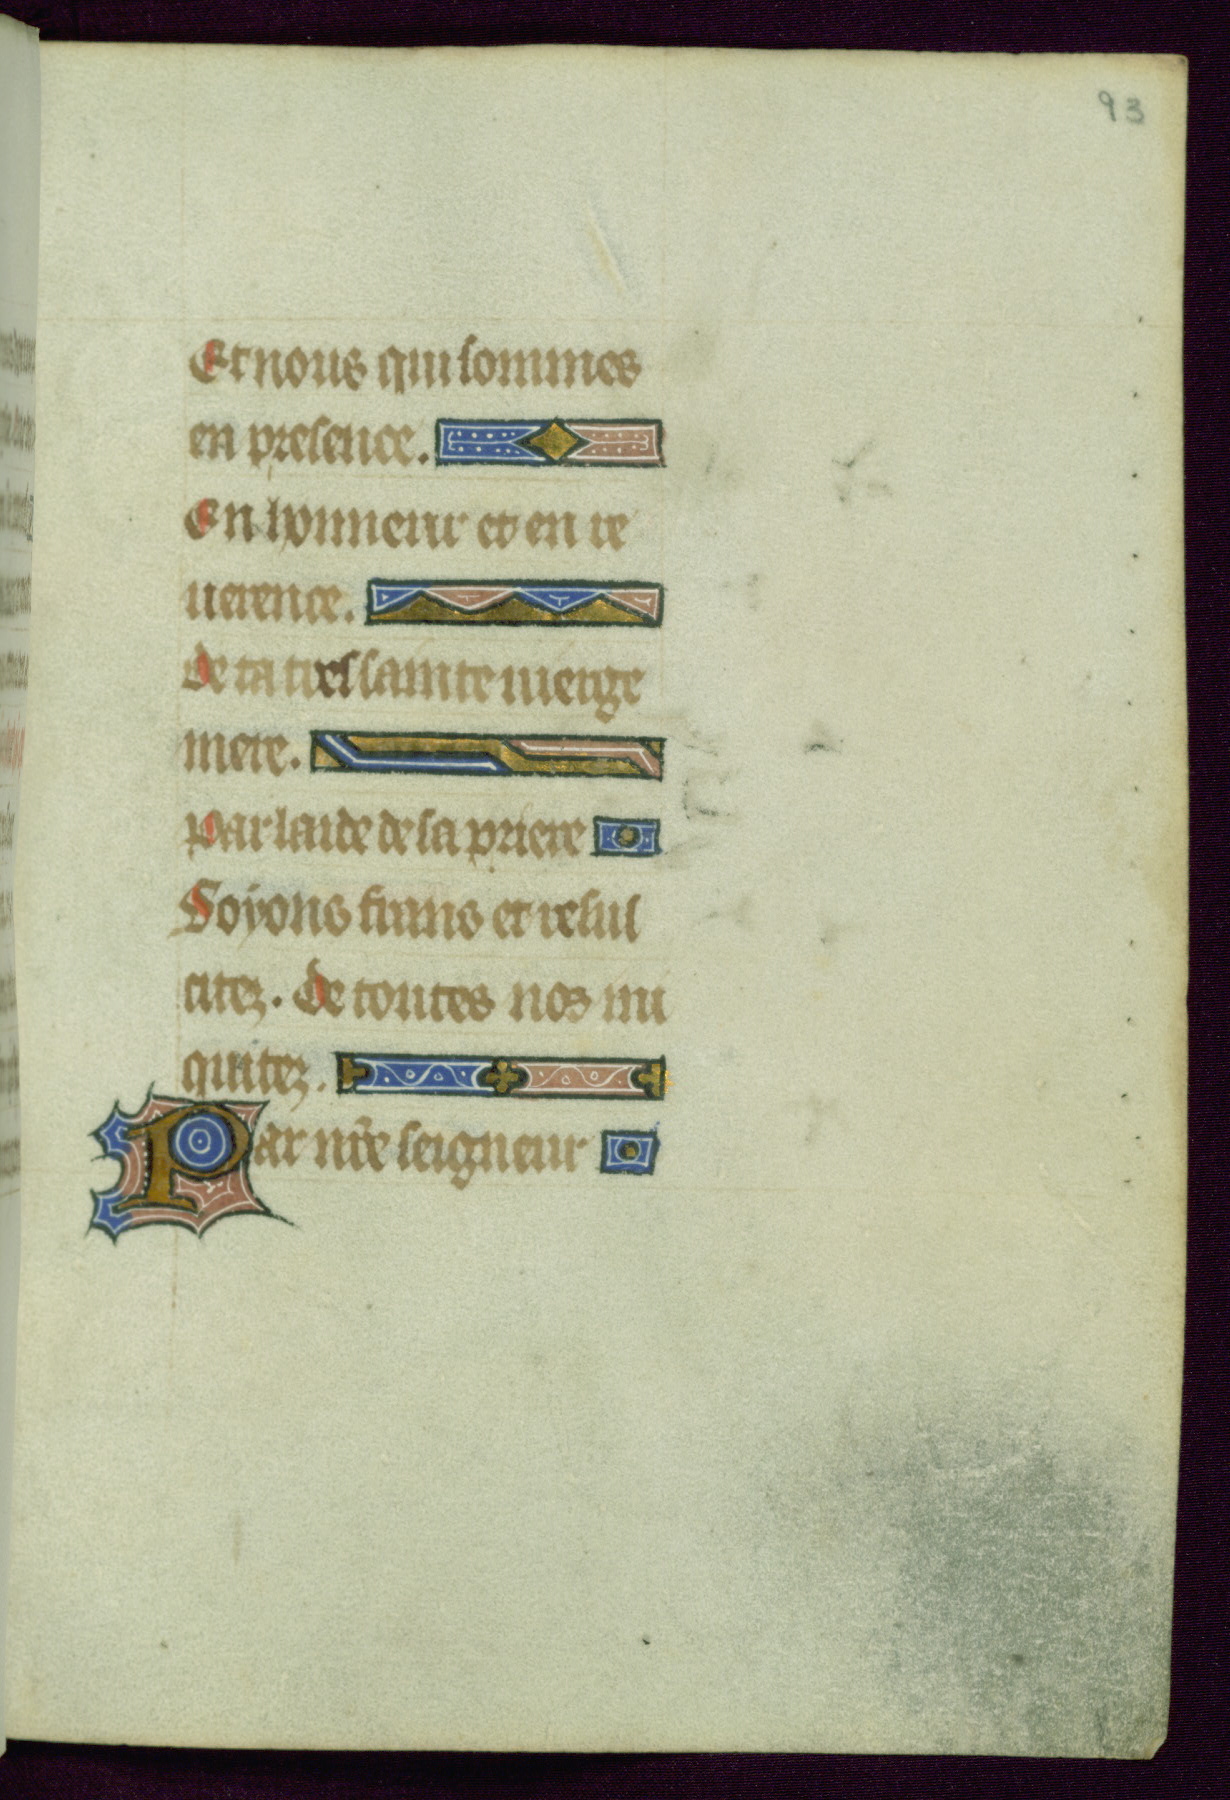 93
Et nous qui sommes
en presence.
En honneur et en re
uerence.
De ta tressainte uierge
mere.
Par laide de sa priere
Soyons frans et resus
citez. De toutes nos ini
quitez.
Par nr̄e seigneur